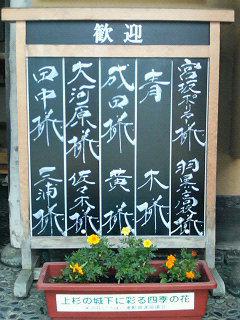 歓迎
宮坂 様
羽黒 様
青木様
成田様
黄様
大河原様
佐々木様
田中様
三浦様
上杉の城下に彩る四季の花